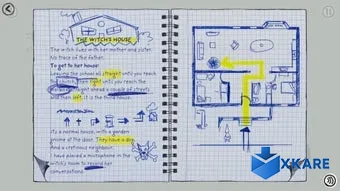 THE WITCH'S HOUSE
The witch lives with her mother and sister.
No trace of the father.
To get to her house:
Leaving the school all straight until you reach
the church, then right until you reach the
straight ahead a couple of streets
and then left, it is the third house.
It's a normal house, with a garden
gnome at the door. They have a dog.
And a cretinous neighbour.
I have placed a microphone in the
witch's room to record her
conversations.
XKARE